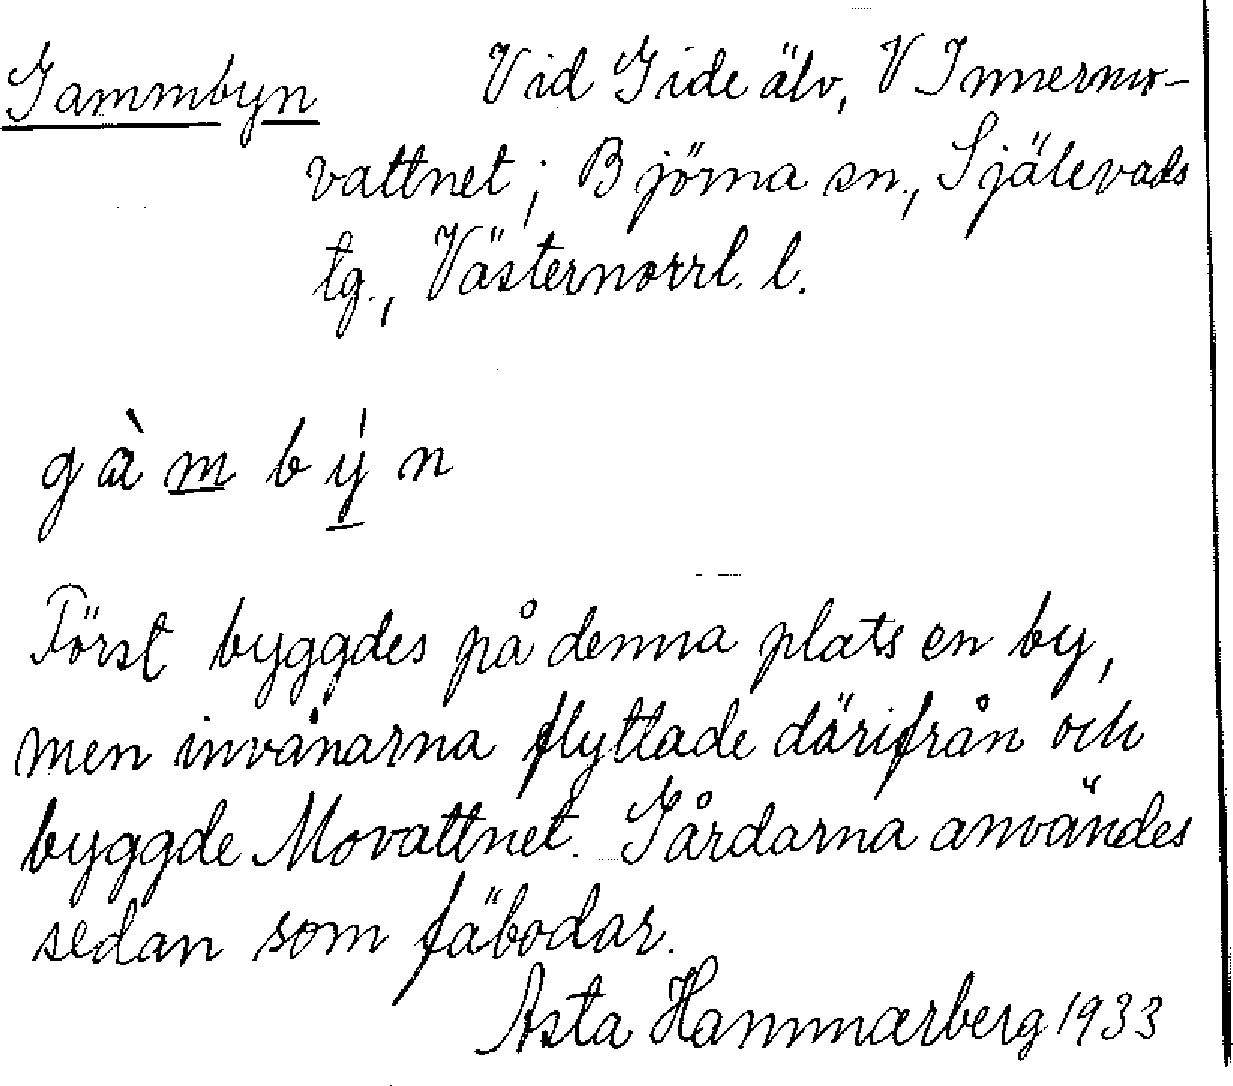 Gammbyn Vid Gide älv, V Innermo-
vattnet; Björna sn., Själevads
tg., Västernorrl. l.
gàm b ý n
Först byggdes på denna plats en by,
men invånarna flyttade därifrån och
byggde Movattnet. Gårdarna användes
sedan som fäbodar.
Asta Hammarberg 1933